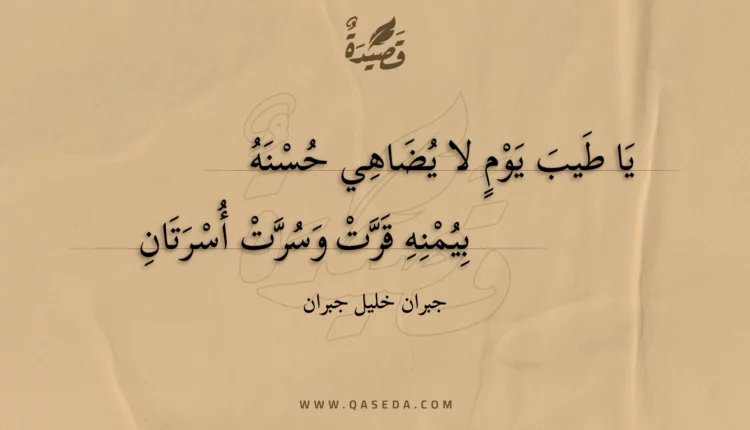 قَصِيْدَةٌ
يَا طَيبَ يَوْمٍ لا يُضَاهِي حُسْنَهُ
بِيُمْنِهِ قَرَّتْ وَسُرَّتْ أُسْرَتَانِ
جبران خليل جبران
WWW.QASEDA.COM